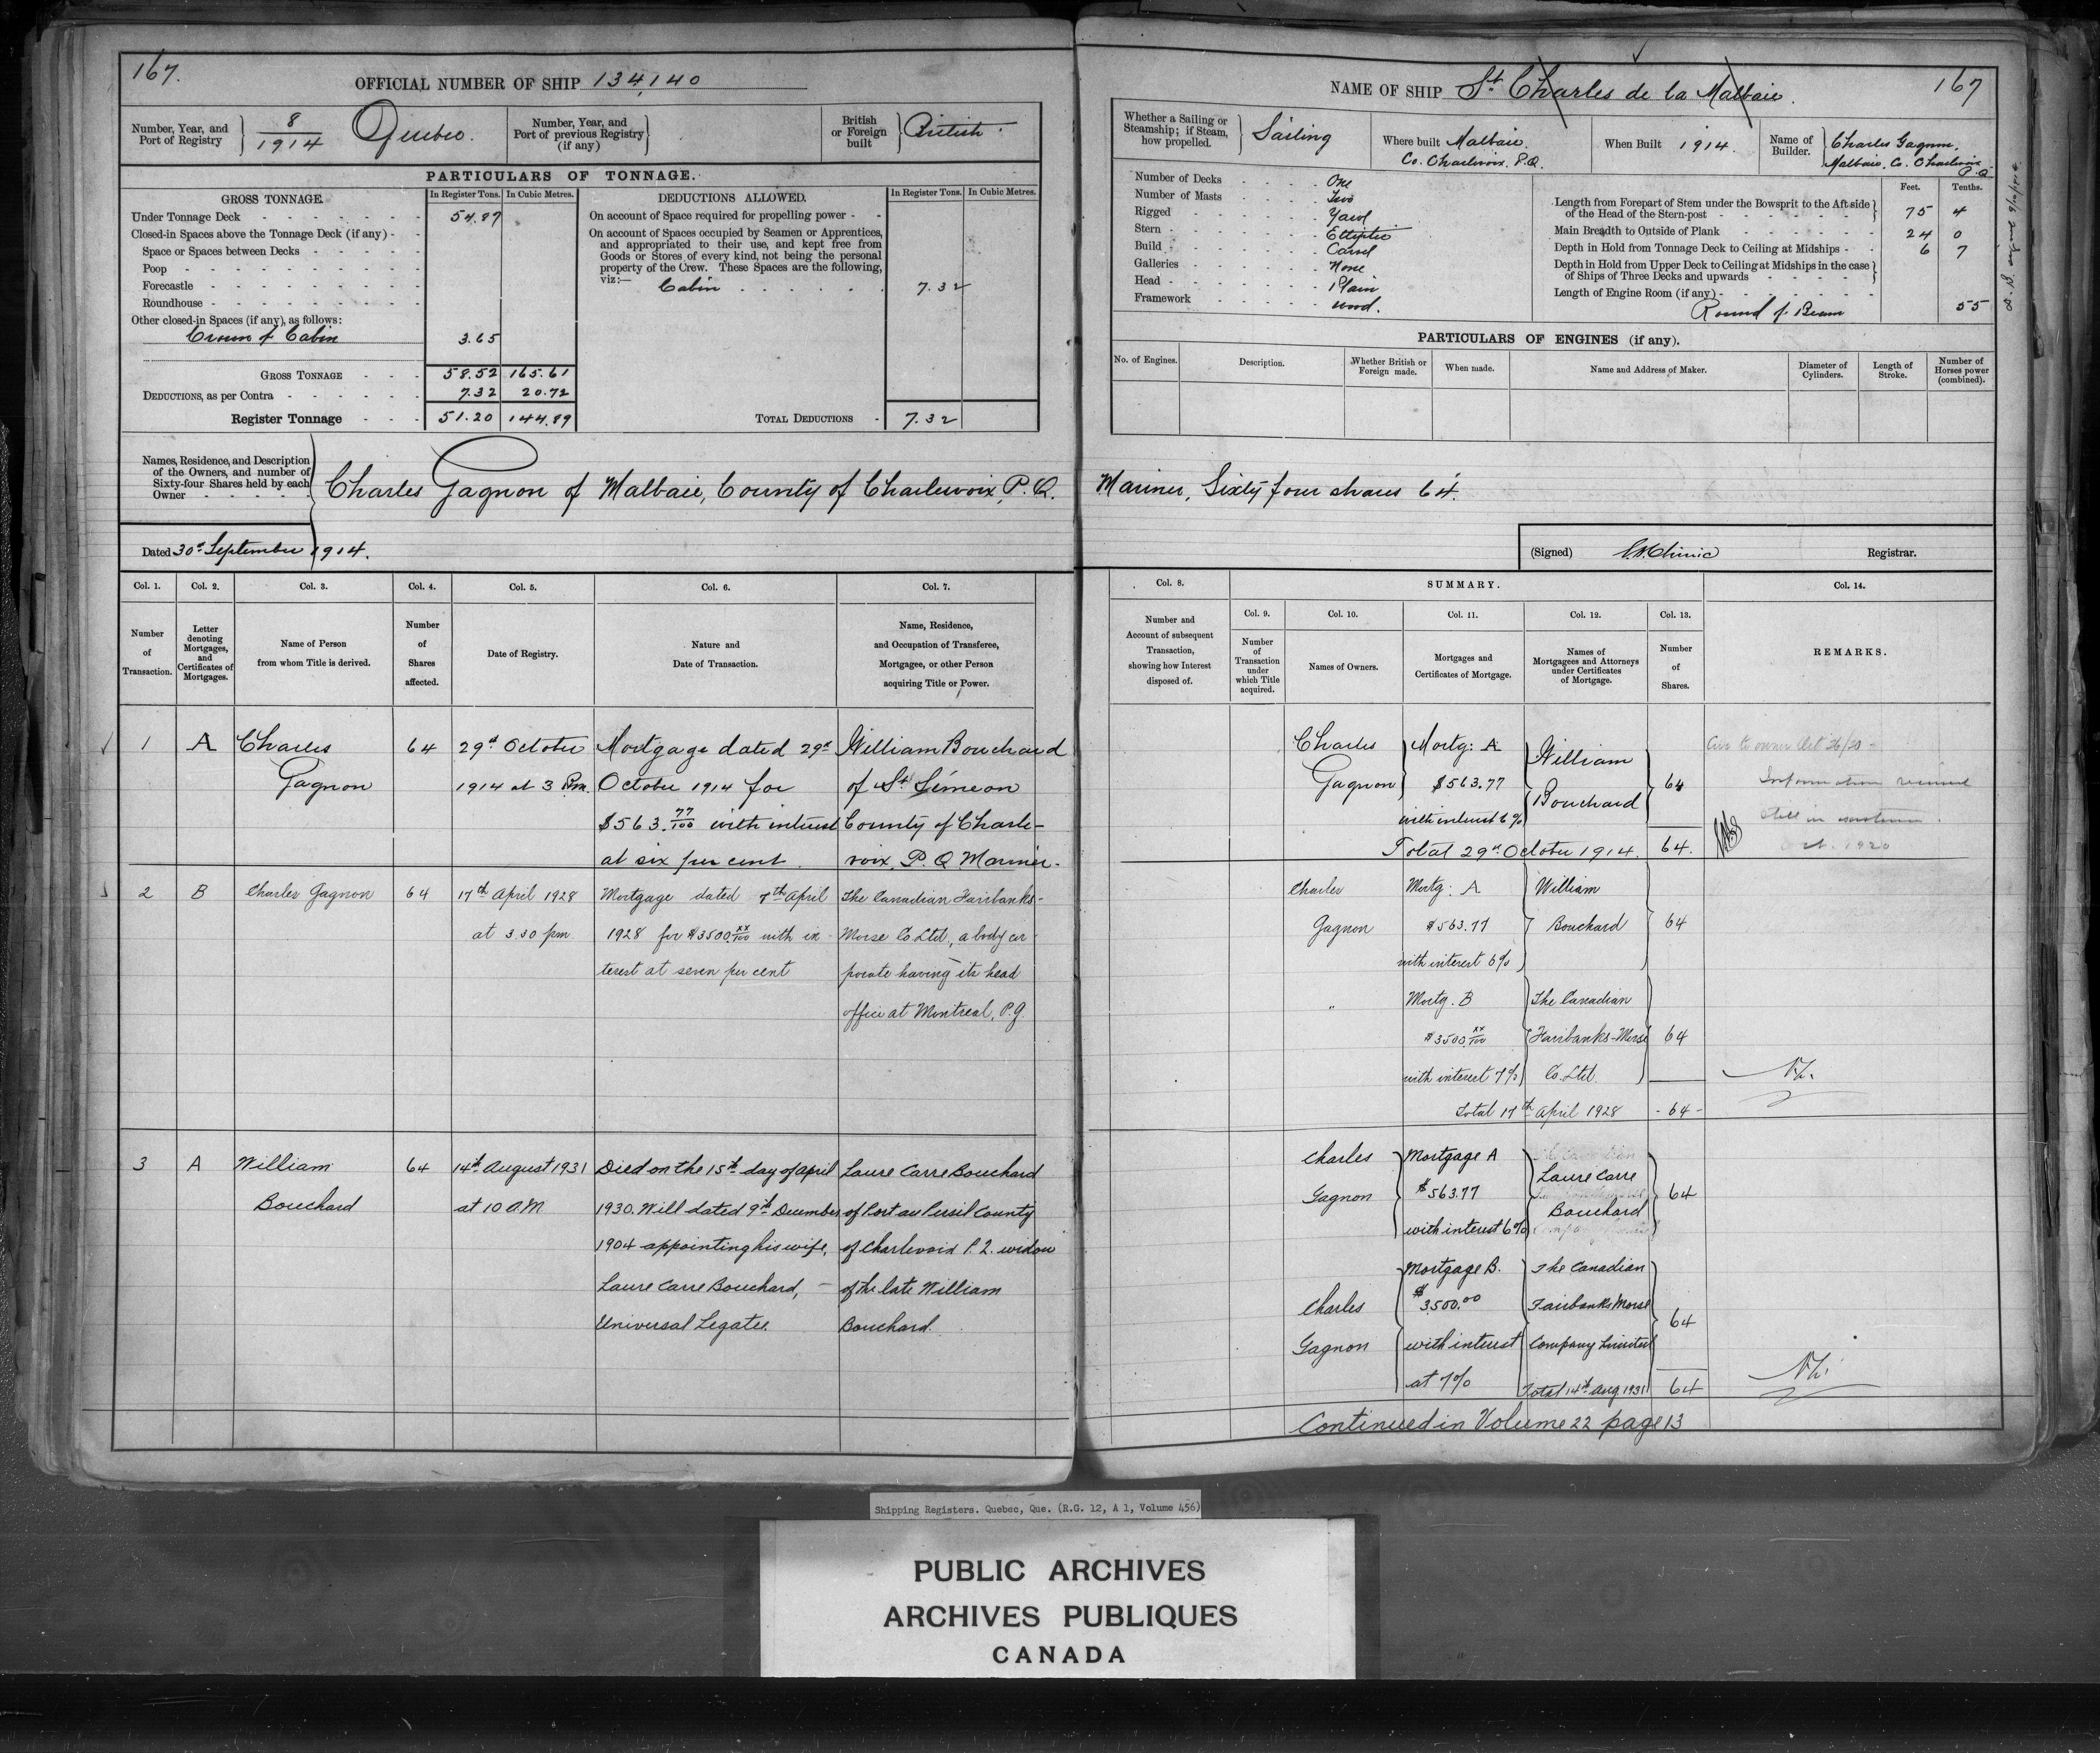 167.
OFFICIAL NUMBER OF SHIP 134,140
Number, Year, and Port of Registry } 8/1914 Quebec.
Number, Year, and Port of previous Registry (if any) }
British or Foreign built } British.
PARTICULARS OF TONNAGE.
GROSS TONNAGE. In Register Tons. In Cubic Metres.
Under Tonnage Deck 54.87
Closed-in Spaces above the Tonnage Deck (if any)
Space or Spaces between Decks
Poop
Forecastle
Roundhouse
Other closed-in Spaces (if any), as follows:
Crown of Cabin 3.65
GROSS TONNAGE 58.52 165.61
DEDUCTIONS, as per Contra 7.32 20.72
Register Tonnage 51.20 144.89
DEDUCTIONS ALLOWED. In Register Tons. In Cubic Metres.
On account of Space required for propelling power
On account of Spaces occupied by Seamen or Apprentices,
and appropriated to their use, and kept free from
Goods or Stores of every kind, not being the personal
property of the Crew. These Spaces are the following,
viz:—
Cabin 7.32
TOTAL DEDUCTIONS 7.32
Names, Residence, and Description
of the Owners, and number of
Sixty-four Shares held by each
Owner
Charles Gagnon of Malbaie, County of Charlevoix, P.Q.
Dated 30th September 1914.
Col. 1. Col. 2. Col. 3. Col. 4. Col. 5. Col. 6. Col. 7.
Number of Transaction.
Letter denoting Mortgages, and Certificates of Mortgages.
Name of Person from whom Title is derived.
Number of Shares affected.
Date of Registry.
Nature and Date of Transaction.
Name, Residence, and Occupation of Transferee, Mortgagee, or other Person acquiring Title or Power.
1 A Charles 64 29th October Mortgage dated 29th William Bouchard
Gagnon 1914 at 3 P.m. October 1914 for of St Siméon
$563.77/100 with interest County of Charle-
at six per cent. voix, P.Q. Mariner.
2 B Charles Gagnon 64 17th April 1928 Mortgage dated 7th April The Canadian Fairbanks-
at 3.30 pm 1928 for $3500 xx/100 with in- Morse Co. Ltd., a body cor-
terest at seven per cent porate having its head
office at Montreal, P.Q.
3 A William 64 14th August 1931 Died on the 15th day of April Laure Carre Bouchard
Bouchard at 10 A.M 1930. Will dated 9th December, of Port au Persil County
1904 appointing his wife, of Charlevoix P.Q. widow
Laure Carre Bouchard, — of the late William
Universal Legatee. Bouchard.
NAME OF SHIP St Charles de la Malbaie.
167
Whether a Sailing or Steamship; if Steam, how propelled. } Sailing
Where built Malbaie.
Co. Charlevoix. P.Q.
When Built 1914.
Name of Builder. Charles Gagnon,
Malbaie, Co. Charlevoix
P.Q.
Number of Decks One
Number of Masts Two
Rigged Yawl
Stern Elliptic
Build Carvel
Galleries None
Head Plain
Framework wood.
Feet. Tenths.
Length from Forepart of Stem under the Bowsprit to the Aft side
of the Head of the Stern-post 75 4
Main Breadth to Outside of Plank 24 0
Depth in Hold from Tonnage Deck to Ceiling at Midships 6 7
Depth in Hold from Upper Deck to Ceiling at Midships in the case
of Ships of Three Decks and upwards
Length of Engine Room (if any)
Round of Beam 55
PARTICULARS OF ENGINES (if any).
No. of Engines. Description. Whether British or Foreign made. When made. Name and Address of Maker. Diameter of Cylinders. Length of Stroke. Number of Horses power (combined).
Mariner, Sixty four shares 64.
(Signed) Registrar.
Col. 8. SUMMARY. Col. 14.
Col. 9. Col. 10. Col. 11. Col. 12. Col. 13.
Number and Account of subsequent Transaction, showing how Interest disposed of.
Number of Transaction under which Title acquired.
Names of Owners.
Mortgages and Certificates of Mortgage.
Names of Mortgagees and Attorneys under Certificates of Mortgage.
Number of Shares.
REMARKS.
Charles Mortg: A William
Gagnon $563.77 Bouchard 64
with interest 6%
Total 29th October 1914. 64.
to owner Oct 26/20
Information received
still in existence.
Oct. 1920
Charles Mortg: A William
Gagnon $563.77 Bouchard 64
with interest 6%
" Mortg. B The Canadian
$3500 xx/100 Fairbanks-Morse 64
with interest 7% Co. Ltd.
Total 17th April 1928 - 64 -
Charles Mortgage A Laure Carre
Gagnon $563.77 Bouchard 64
with interest 6%
Mortgage B. The Canadian
Charles $3500.00 Fairbanks Morse 64
Gagnon with interest Company Limited
at 7% Total 14th Aug. 1931 64
Continued in Volume 22 page 13
Shipping Registers. Quebec, Que. (R.G. 12, A 1, Volume 456)
PUBLIC ARCHIVES
ARCHIVES PUBLIQUES
CANADA